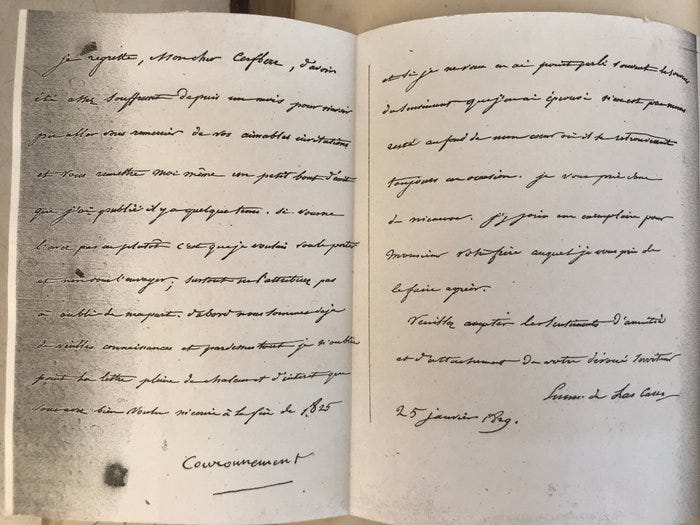 je regrette, Mon cher Cerfberr, d'avoir
été assez souffrant depuis un mois pour n'avoir
pu aller vous remercier de vos aimables invitations
et vous remettre moi même un petit bout d'écrit
que j'ai publié il y a quelque tems. si vous ne
l'avez pas eu plutôt c'est que je voulais vous le porter
et non vous l'envoyer; surtout ne l'attribuez pas
à oubli de ma part. d'abord nous sommes déja
de vieilles connaissances et pardessus tout je n'oublie
point la lettre pleine de chaleur et d'intéret que
vous avez bien voulu m'écrire à la fin de 1825
Couronnement
et si je ne vous en ai point parlé souvent le
du sentiment que j'en ai épouvé n'en est pas moins
resté au fond de mon cœur où il se retrouverait
toujours en occasion. je vous prie donc
de m'excuser. j'y joins un exemplaire pour
Monsieur votre frère auquel je vous prie de
le faire agréer.
Veuillez accepter les sentiments d'amitié
et d'attachement de votre dévoué serviteur
de Las Cases
25 janvier 1829.